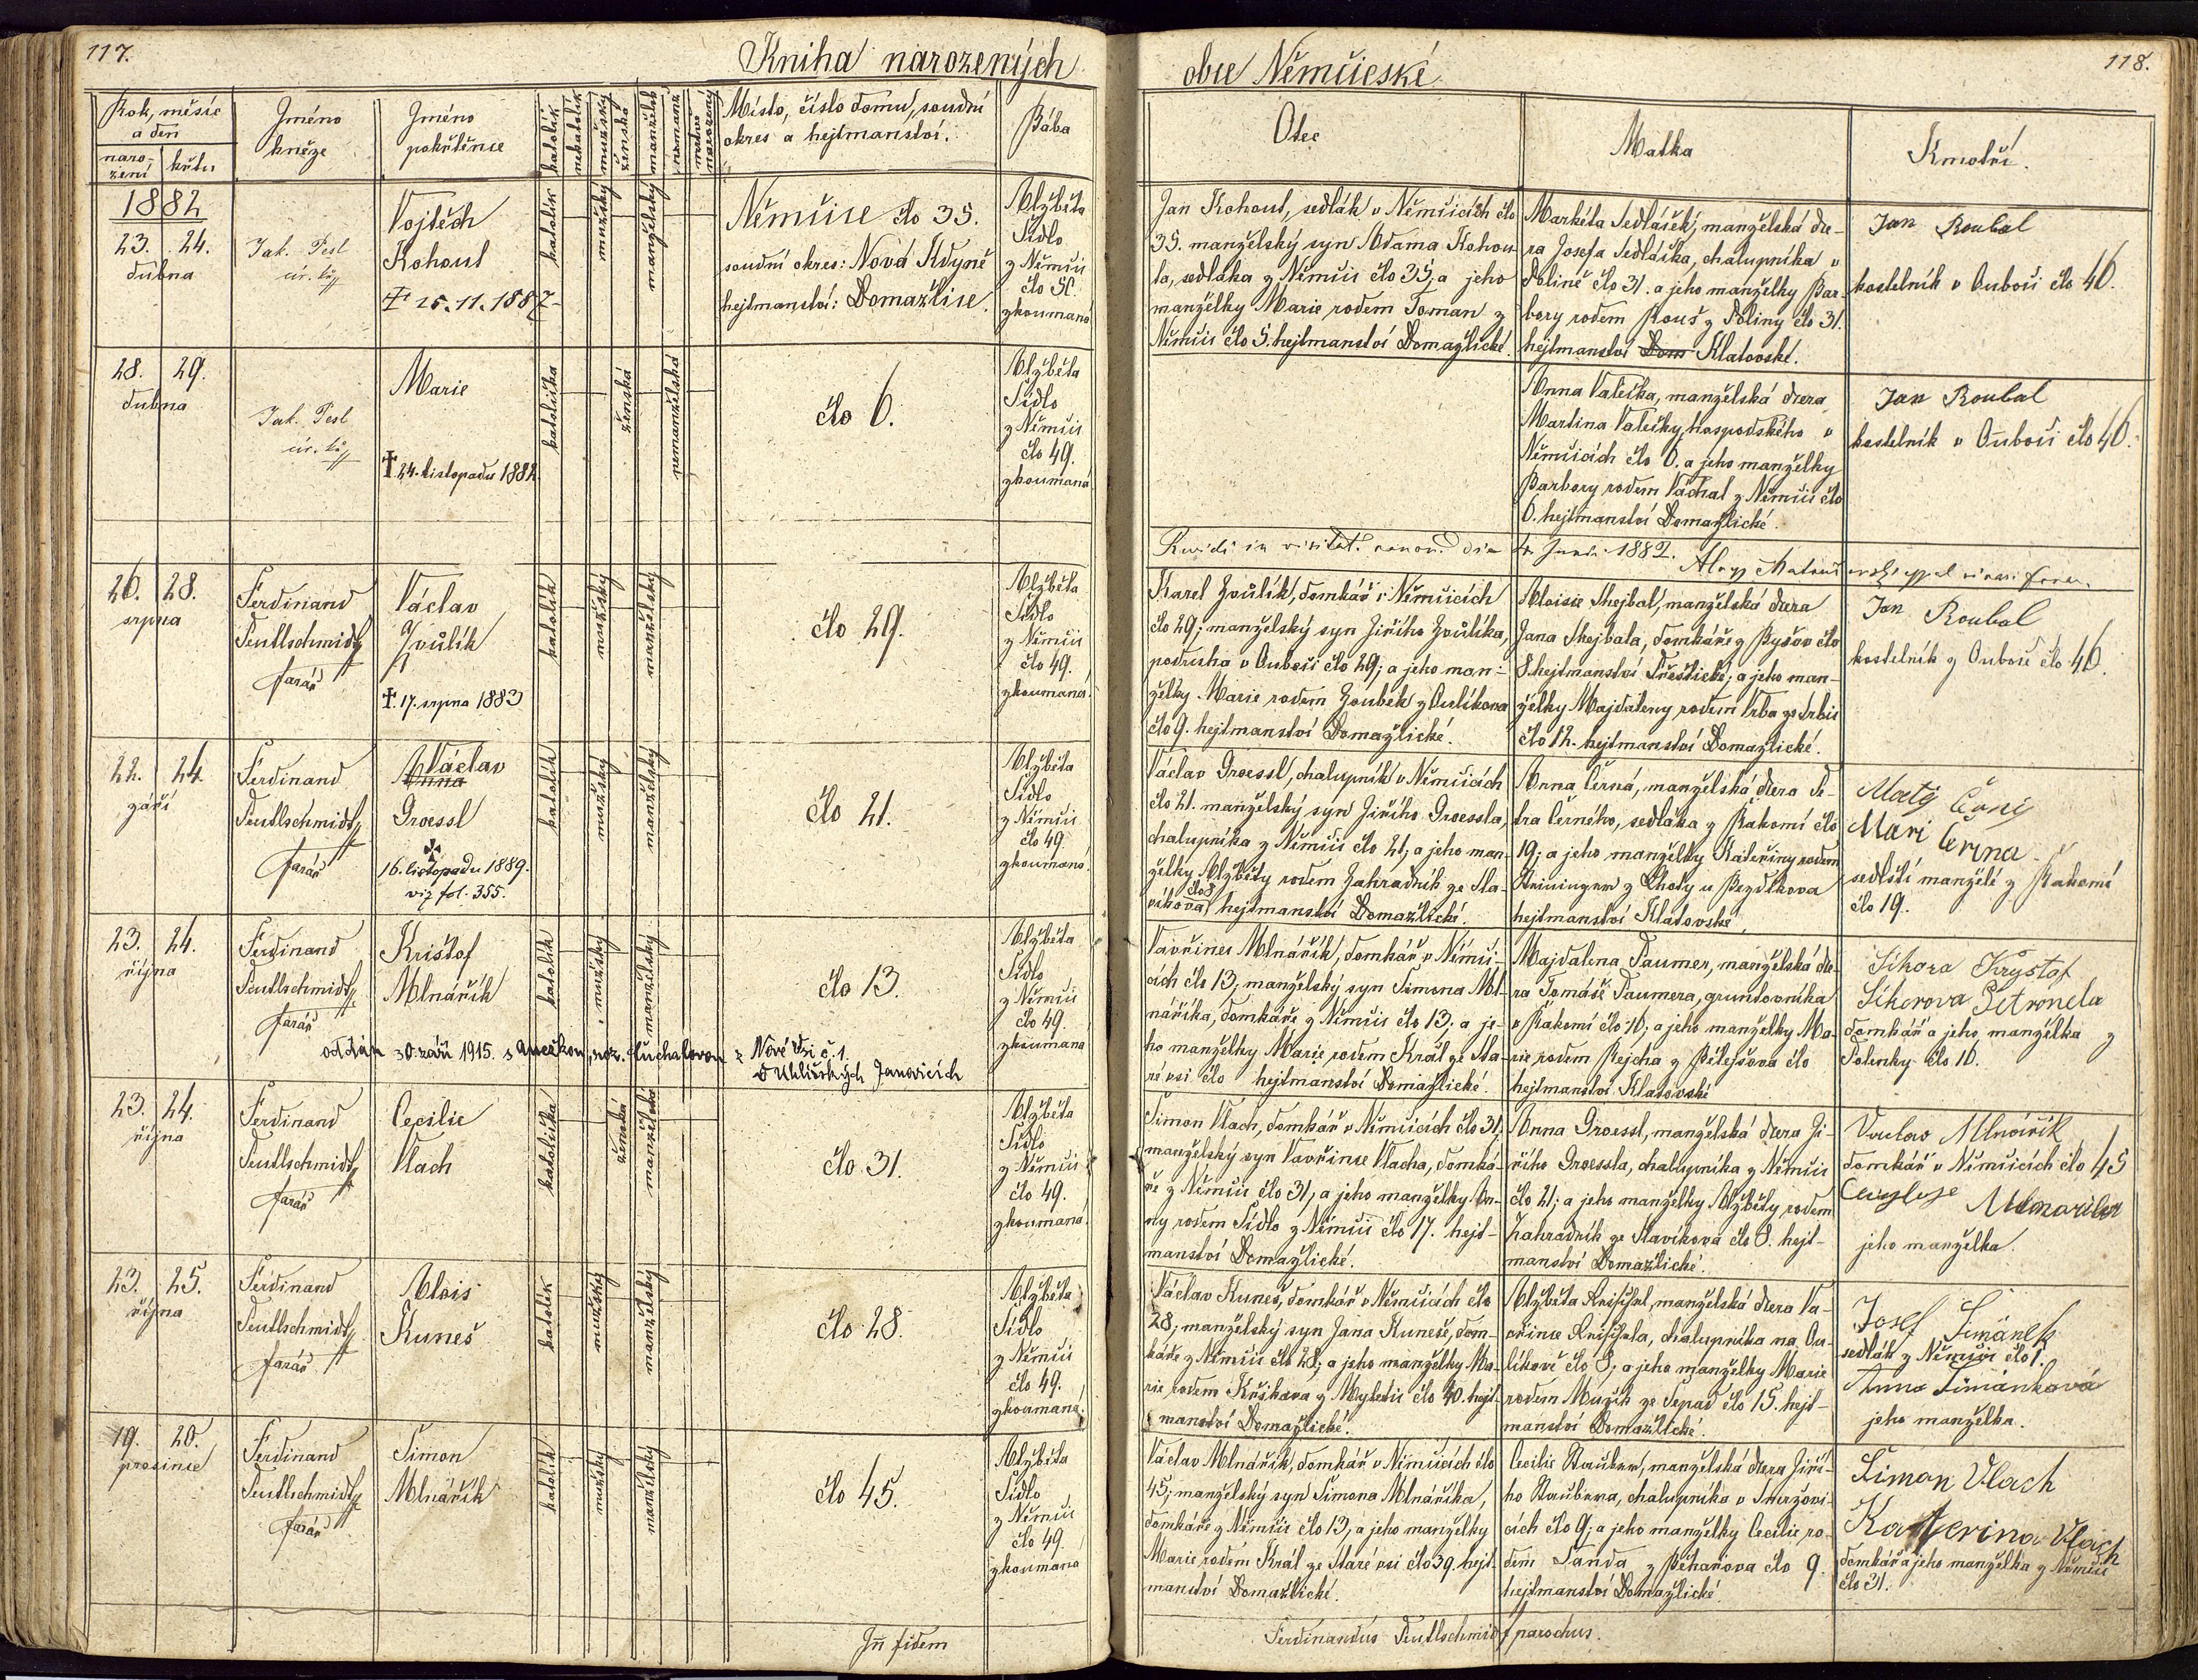 117.
Kniha narozených
obce Němčické
118.
Rok, měsíc
a den
naro-
zení
křtu
Jméno
kněze
Jméno
pokřtěnce
katolík
nekatolík
mužský
ženská
manželské
nemanž.
mrtvo
narozený
Místo, číslo domu, soudní
okres a hejtmanství.
Bába
Otec
Matka
Kmotři.
1882
23. 24.
dubna
Jak. Pesl
Vojtěch
Kohout
† 25.11.1887
katolík
mužský
manželský
Němčice čło 35.
soudní okres: Nová Kdyně
hejtmanství: Domažlice.
Alžběta
Sídlo
z Němčic
čło 50.
zkoumaná
Jan Kohout, sedlák v Němčicích čło
35. manželský syn Adama Kohou-
ta, sedláka z Němčic čło 35, a jeho
manželky Marie rodem Toman z
Němčic čło 5. hejtmanství Domažlické.
Markéta Sedláček, manželská dce-
ra Josefa Sedláčka, chalupníka v
Polině čło 31. a jeho manželky Bar-
bory rodem Rouš z Poliny čło 31.
hejtmanství Dom Klatovské.
Jan Roubal
kostelník v Ouboči čło 46.
28. 29.
dubna
Jak. Pesl
Marie
† 24. listopadu 1882
katolička
ženská
nemanželská
čło 6.
Alžběta
Sídlo
z Němčic
čło 49.
zkoumaná
Anna Valečka, manželská dcera
Martina Valečky, hospodského v
Němčicích čło 6. a jeho manželky
Barbory rodem Váchal z Němčic čło
6. hejtmanství Domažlické.
Jan Roubal
kostelník v Ouboči čło 46.
Revidi in visitat. canon. die 4. Juni 1882.
26. 28.
srpna
Ferdinand
Teutlschmidt
farář
Václav
Zoůlík
† 17. srpna 1883
katolík
mužský
manželský
čło 29.
Alžběta
Sídlo
z Němčic
čło 49.
zkoumaná
Karel Zoůlík, domkář v Němčicích
čło 29; manželský syn Jiřího Zoůlíka,
podruha v Ouboči čło 29; a jeho man-
želky Marie rodem Zoubek z Oulíkova
čło 9. hejtmanství Domažlické.
Aloisie Shejbal, manželská dcera
Jana Shejbala, domkáře z Byšov čło
8. hejtmanství Přeštické; a jeho man-
želky Majdaleny rodem Vrba ze Srbic
čło 12. hejtmanství Domažlické.
Jan Roubal
kostelník z Ouboče čło 46.
22. 24.
září
Ferdinand
Teutlschmidt
farář
Václav
Anna
Groessl
†
16. listopadu 1889.
viz fol. 355.
katolík
mužský
manželský
čło 21.
Alžběta
Sídlo
z Němčic
čło 49.
zkoumaná
Václav Groessl, chalupník v Němčicích
čło 21. manželský syn Jiřího Groessla,
chalupníka z Němčic čło 21, a jeho man-
želky Alžběty rodem Zahradník ze Sla-
víkova čło 8 hejtmanství Domažlické.
Anna Černá, manželská dcera Pe-
tra Černého, sedláka z Bakomí čło
19; a jeho manželky Kateřiny rodem
z Lhoty u Bezděkova
hejtmanství Klatovské.
Matěj Černý
Mari Černa
sedlští manželé z Bakomí
čło 19.
23. 24.
října
Ferdinand
Teutlschmidt
farář
Krištof
Mlnářík
katolík
mužský
manželský
čło 13.
Alžběta
Sídlo
z Němčic
čło 49.
zkoumaná
oddán 30. září 1915. s Anežkou, roz. Suchalovou z Nové Vsi č. 1.
v Uhlířských Janovicích
Vavřinec Mlnářík, domkář v Němči-
cích čło 13; manželský syn Šimona Ml-
náříka, domkáře z Němčic čło 13; a je-
ho manželky Marie, rodem Král ze Sta-
ré vsi čło hejtmanství Domažlické.
Majdalena Paumer, manželská dce-
ra Tomáše Paumera, gruntovníka
v Bakomí čło 16; a jeho manželky Ma-
rie rodem Rejcha z Petejšova čło
hejtmanství Klatovské
Sikora Krystof
Sikorova Petronela
domkář a jeho manželka z
Polenky čło 16.
23. 24.
října
Ferdinand
Teutlschmidt
farář
Cecilie
Vlach
katolička
ženská
manželská
čło 31.
Alžběta
Sídlo
z Němčic
čło 49.
zkoumaná
Šimon Vlach, domkář v Němčicích čło 31;
manželský syn Vavřince Vlacha, domká-
ře z Němčic čło 31, a jeho manželky An-
ny rodem Sídlo z Němčic čło 17. hejt-
manství Domažlické.
Anna Groessl, manželská dcera Ji-
řího Groessla, chalupníka z Němčic
čło 21; a jeho manželky Alžběty rodem
Zahradník ze Slavíkova čło 8. hejt-
manství Domažlické.
Vaclav Mlnářík
domkář v Němčicích čło 45
jeho manželka.
23. 25.
října
Ferdinand
Teutlschmidt
farář
Alois
Kuneš
katolík
mužský
manželský
čło 28.
Alžběta
Sídlo
z Němčic
čło 49.
zkoumaná
Václav Kuneš, domkář v Němčicích čło
28; manželský syn Jana Kuneše, dom-
káře z Němčic čło 28; a jeho manželky Ma-
rie rodem z Mysletic čło 40. hejt-
manství Domažlické.
Alžběta Krištfal, manželská dcera Va-
vřince Krištfala, chalupníka na Ou-
líkově čło 8; a jeho manželky Marie
rodem Mužík ze Sepad čło 15. hejt-
manství Domažlické.
Josef Šimánek
sedlák z Němčic čło 1.
Anna Šimánková
jeho manželka.
19. 20.
prosince
Ferdinand
Teutlschmidt
farář
Šimon
Mlnářík
katolík
mužský
manželský
čło 45.
Alžběta
Sídlo
z Němčic
čło 49.
zkoumaná
Václav Mlnářík, domkář v Němčicích čło
45; manželský syn Šimona Mlnáříka,
domkáře z Němčic čło 13, a jeho manželky
Marie rodem Král ze Staré vsi čło 39. hejt-
manství Domažlické.
Cecilie Stauber, manželská dcera Jiří-
ho Staubera, chalupníka v Smržovi-
cích čło 9; a jeho manželky Cecilie ro-
dem Tanda z Běhařova čło 9
hejtmanství Domažlické.
Šimon Vlach
Katerina Vlach
domkář a jeho manželka z Němčic
čło 31.
In fidem
Ferdinandus Teutlschmidt parochus.